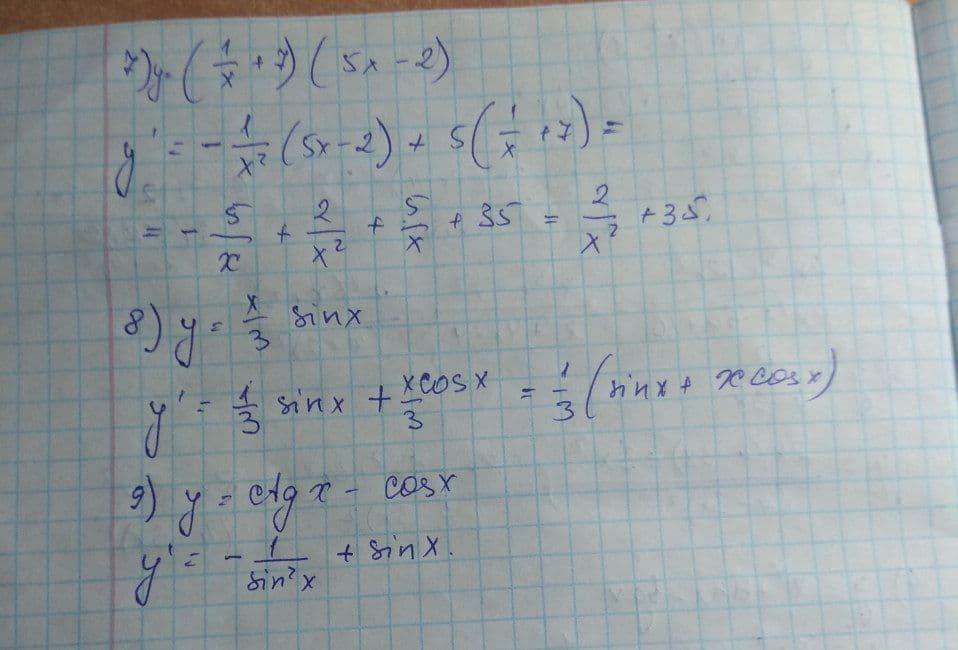 7) y = (1/x + 7)(5x - 2)
y' = - 1/x² (5x - 2) + 5(1/x + 7) =
= - 5/x + 2/x² + 5/x + 35 = 2/x² + 35.
8) y = x/3 sinx
y' = 1/3 sinx + xcosx/3 = 1/3 (sinx + xcosx)
9) y = ctg x - cosx
y' = - 1/sin²x + sinx.